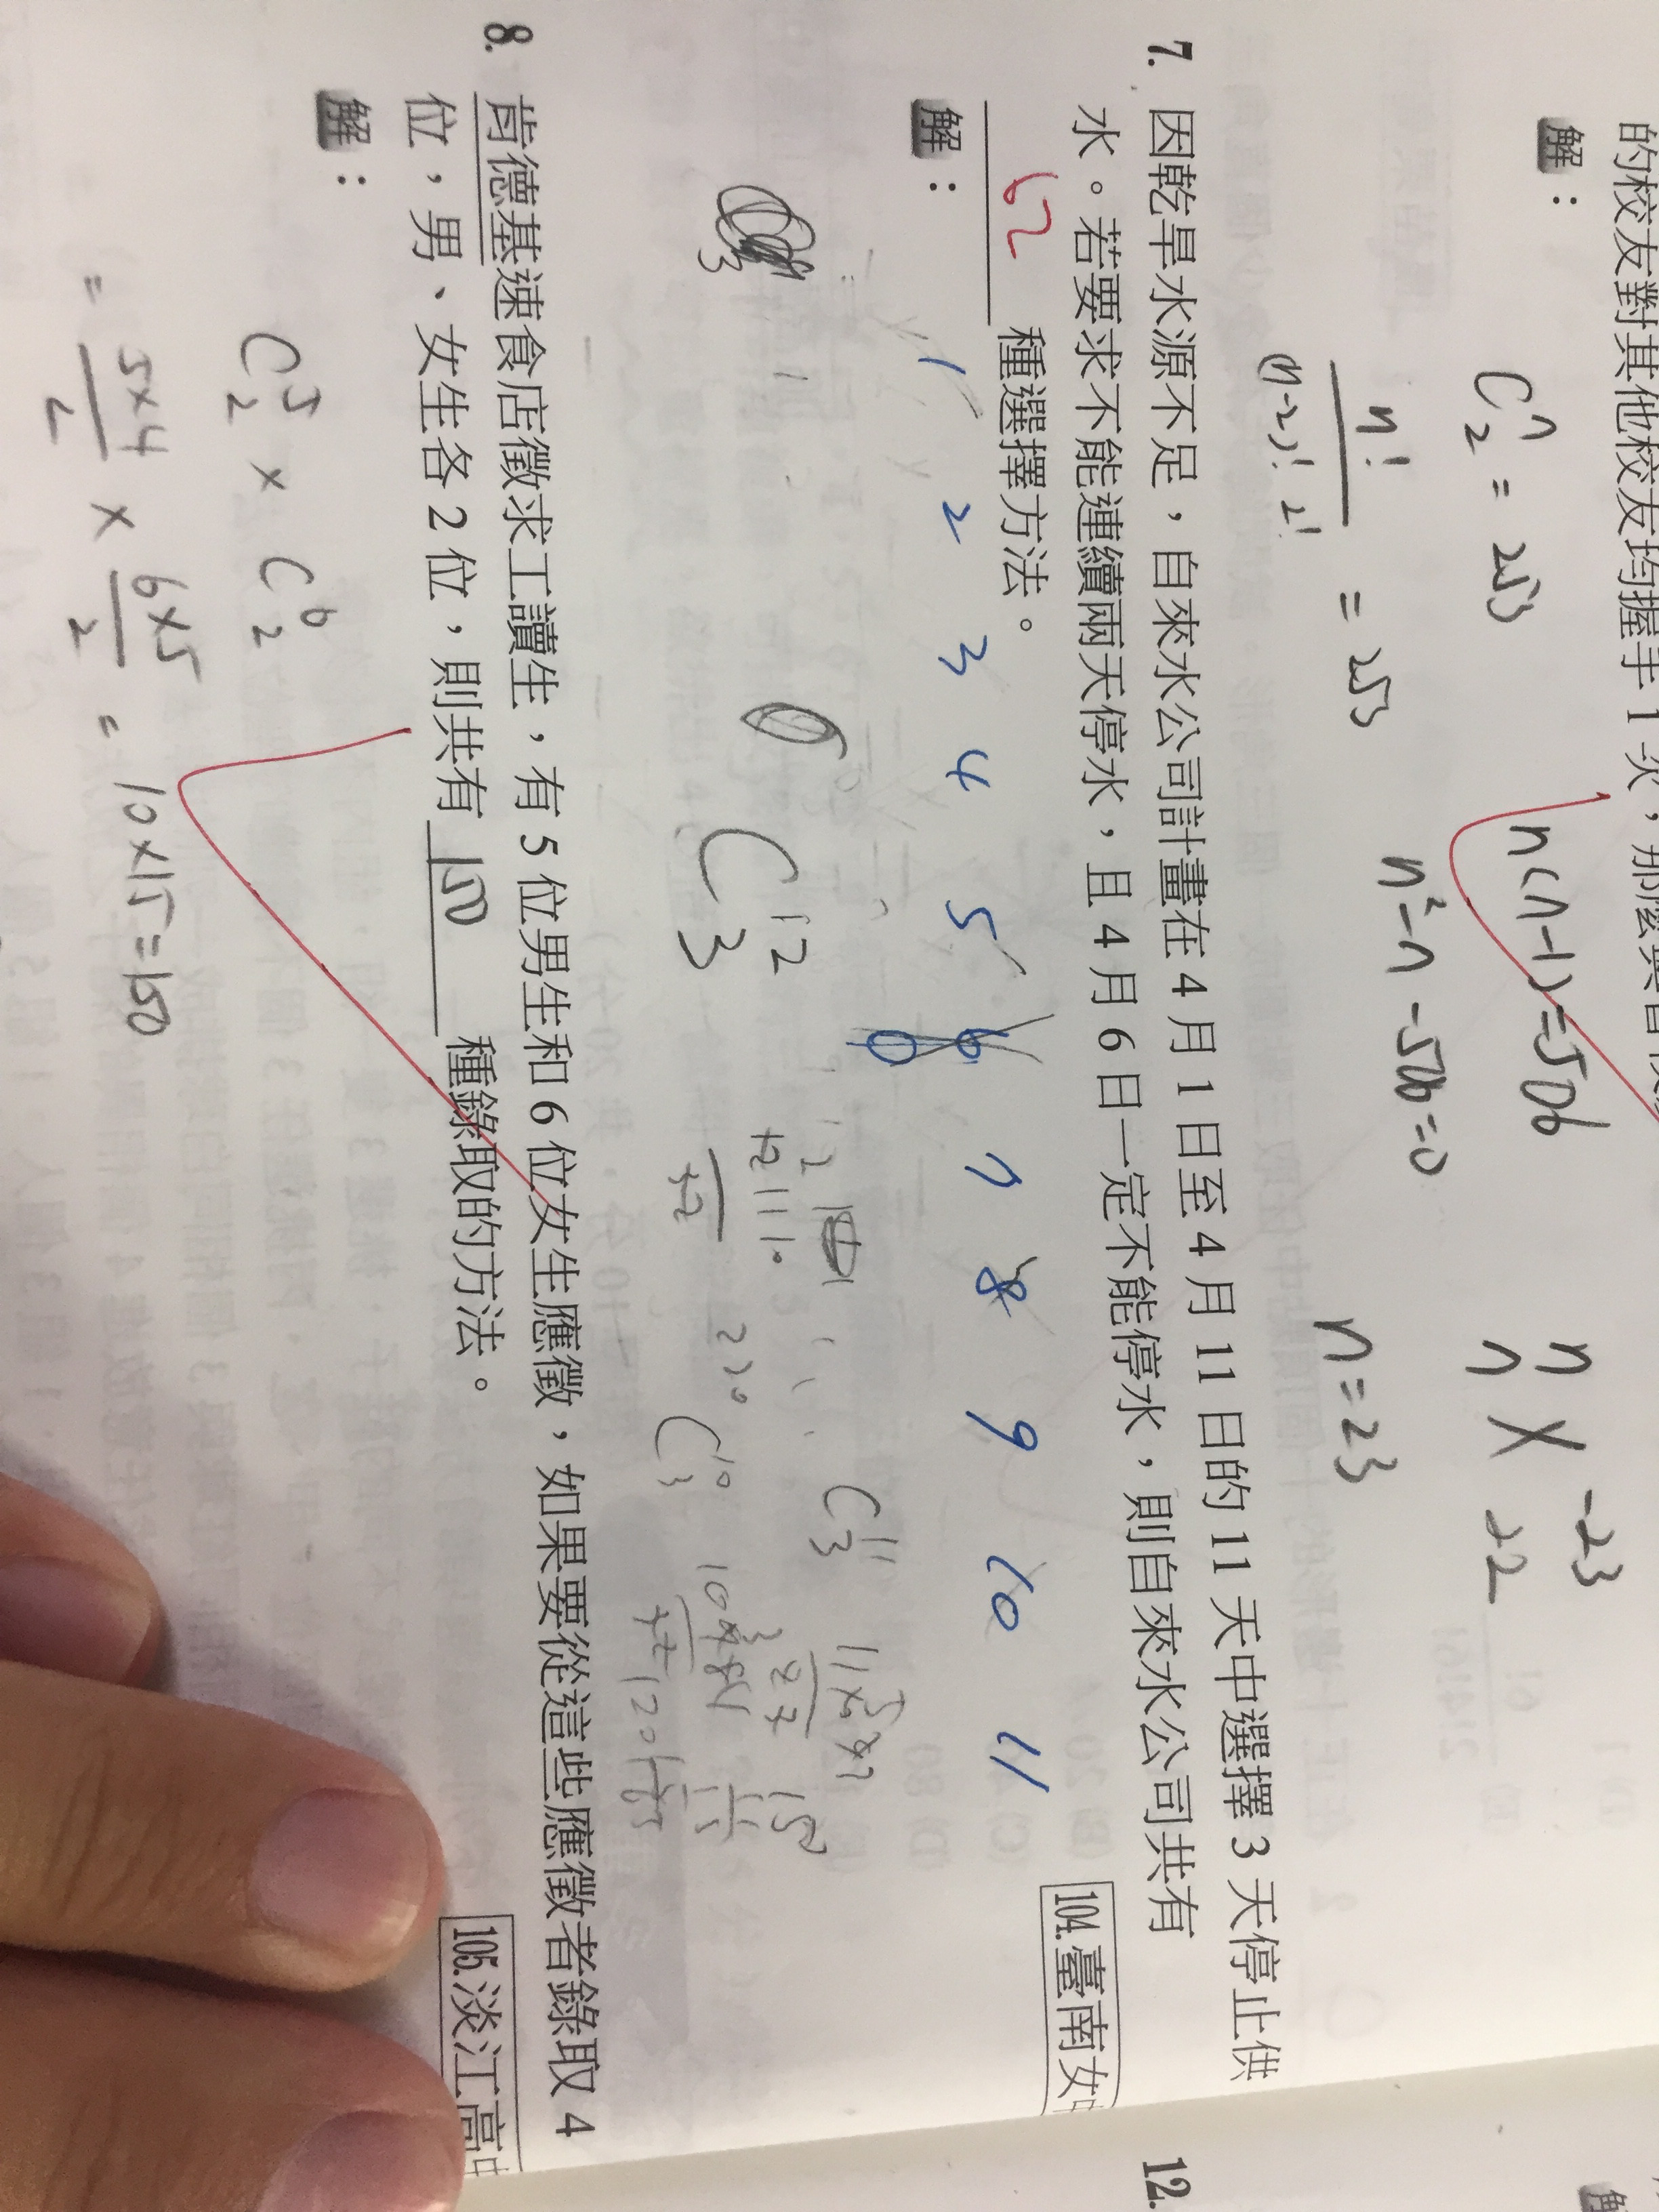 的校友對其他校友均握手1次，那麼
解：
C n 2 = 253
n! / (n-2)! 2! = 253
n(n-1)=506
n²-n-506=0
n -23
n 22
n=23
7. 因乾旱水源不足，自來水公司計畫在4月1日至4月11日的11天中選擇3天停止供
水。若要求不能連續兩天停水，且4月6日一定不能停水，則自來水公司共有
62 種選擇方法。
104.臺南女
解：
1 2 3 4 5 6 7 8 9 10 11
C 12 3
C 11 3
C 10 3
8. 肯德基速食店徵求工讀生，有5位男生和6位女生應徵，如果要從這些應徵者錄取4
位，男、女生各2位，則共有 150 種錄取的方法。
105.淡江高
解：
C 5 2 × C 6 2
= 5×4 / 2 × 6×5 / 2 = 10×15=150
12.
解